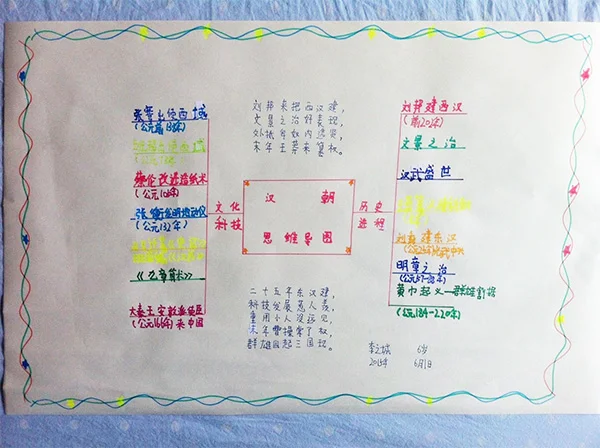 张骞出使西域
(公元前138年)
蔡伦改进造纸术
(公元105年)
张衡发明地动仪
(公元132年)
《九章算术》
大秦王安敦派使臣
(公元166年)来中国
文化
科技
刘邦来把西汉建，
文景之治好表现，
外抵匈奴内法儒，
末年王莽来篡权。
汉 朝
思维导图
二十五年东汉建，
科技发展惠人表，
重用小人没远见，
末年曹操掌了权，
群雄四起三国现。
历史
进程
刘邦建西汉
(前202年)
文景之治
汉武盛世
刘秀建东汉
明章之治
(公元57-88年)
黄巾起义—群雄割据
(公元184-220年)
6岁
2015年 6月1日